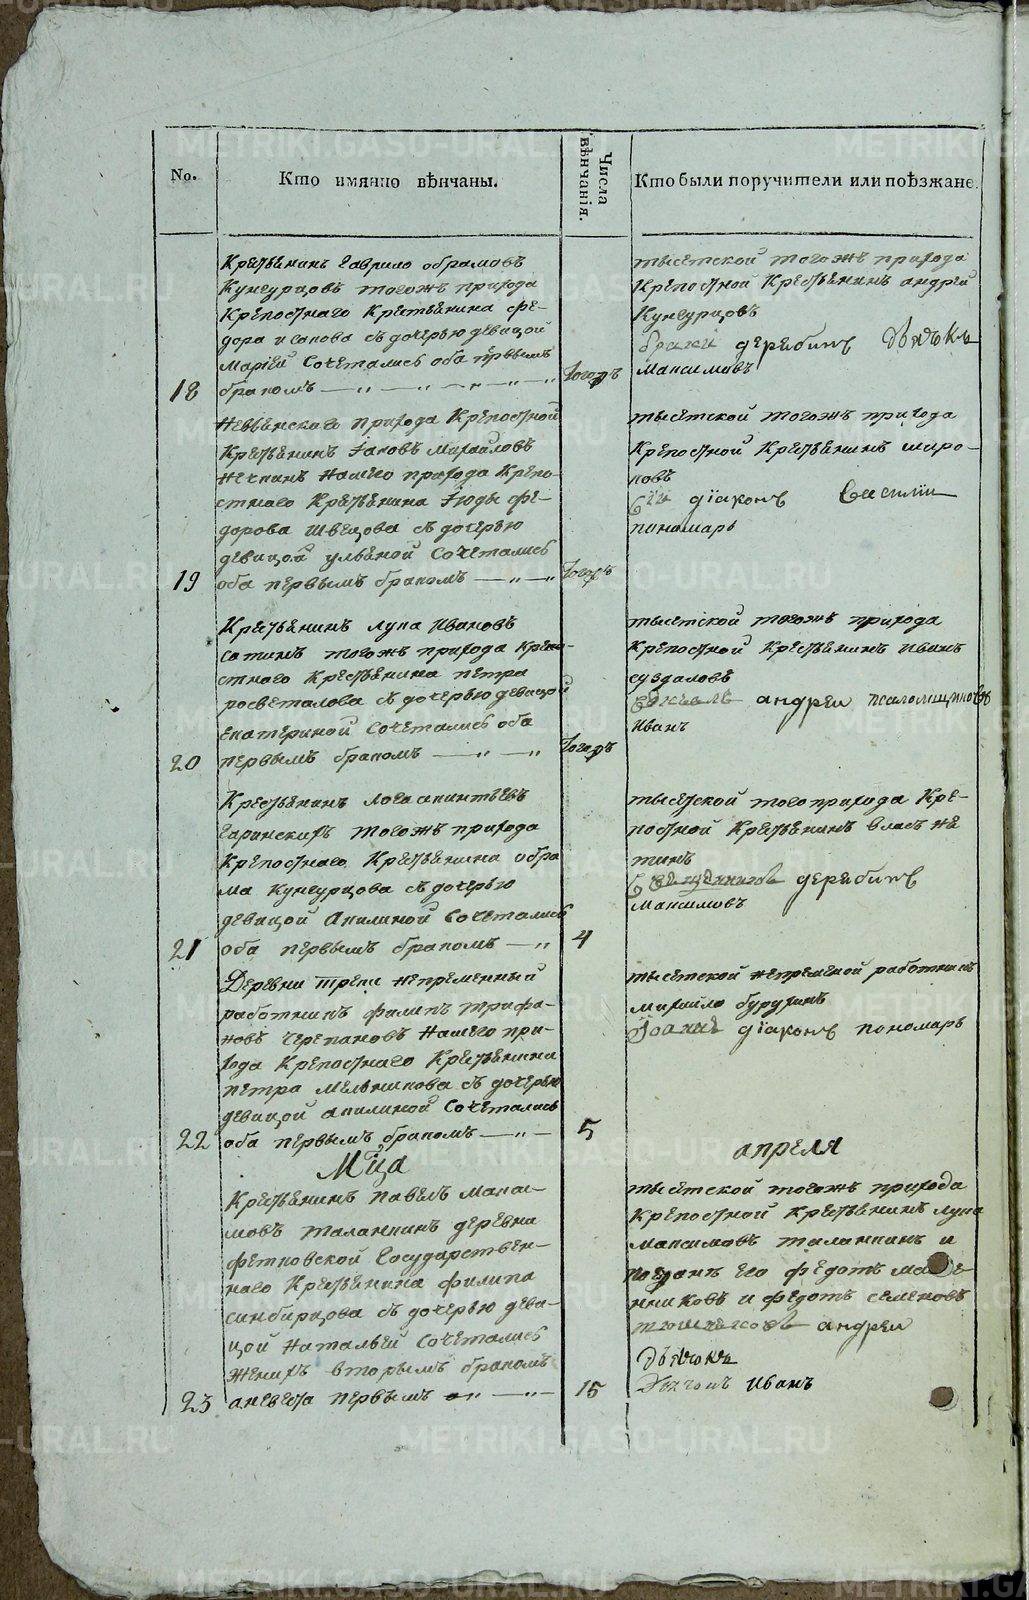 No.
Кто имянно вѣнчаны.
Числа вѣнчанія.
Кто были поручители или поѣзжане.
Крестьянинъ Гаврило обрамовъ
Кунгурцовъ тогожъ прихода
Крепостнаго Крестьянина фе-
дора исакова съ дочерью девицой
Марїей Сочетались оба первымъ
18 бракомъ — „ — „ — „ — „ — „ тогожъ
тысетской тогожъ прихода
Крепостной Крестьянинъ андрей
Кунгурцовъ
дерябинъ дьячекъ
Максимовъ
Невьянскаго прихода Крепостной
Крестьянинъ Іаковъ Михайловъ
нашего прихода Крепо-
стнаго Крестьянина Іюды фе-
дорова Швецова съ дочерью
девицой ульяной Сочетались
19 оба первымъ бракомъ — „ — „ тогожъ
тысетской тогожъ прихода
Крепостной Крестьянинъ широ-
ковъ
діаконъ Василии
пономарь
Крестьянинъ лупа Ивановъ
сатинъ тогожъ прихода Крепо-
стнаго Крестьянина петра
росветалова съ дочерью девицой
Екатериной Сочетались оба
20 первымъ бракомъ — „ — „ тогожъ
тысетской тогожъ прихода
Крепостной Крестьянинъ Иванъ
суздаловъ
андреи
Иванъ
Крестьянинъ
тогожъ прихода
Крепостнаго Крестьянина обра
ма Кунгурцова съ дочерью
девицой Акилиной Сочетались
21 оба первымъ бракомъ — „ 4
тысетской того прихода Кре-
постной Крестьянинъ Власъ Не
тинъ
Священникъ дерябинъ
Максимовъ
Деревни непременный
работникъ филипъ трифа-
новъ черепановъ Нашего при-
хода Крепостнаго Крестьянина
петра Мельникова съ дочерью
девицой акилиной Сочетались
22 оба первымъ бракомъ — „ — 5
тысетской непременой работникъ
михаило бурухинъ
Іоаннъ діаконъ пономарь
Мца апреля
Крестьянинъ павелъ Макси-
мовъ таланкинъ деревни
фетковской Государствен-
наго Крестьянина филипа
синбирцова съ дочерью деви-
цой Натальей Сочетались
Женихъ вторымъ бракомъ
23 аневеста первымъ — „ — „ 15
тысетской тогожъ прихода
Крепостной Крестьянинъ лупа
максимовъ таланкинъ и
поезжанъ его федотъ
и федотъ семеновъ
андреи
дьячокъ
Иванъ